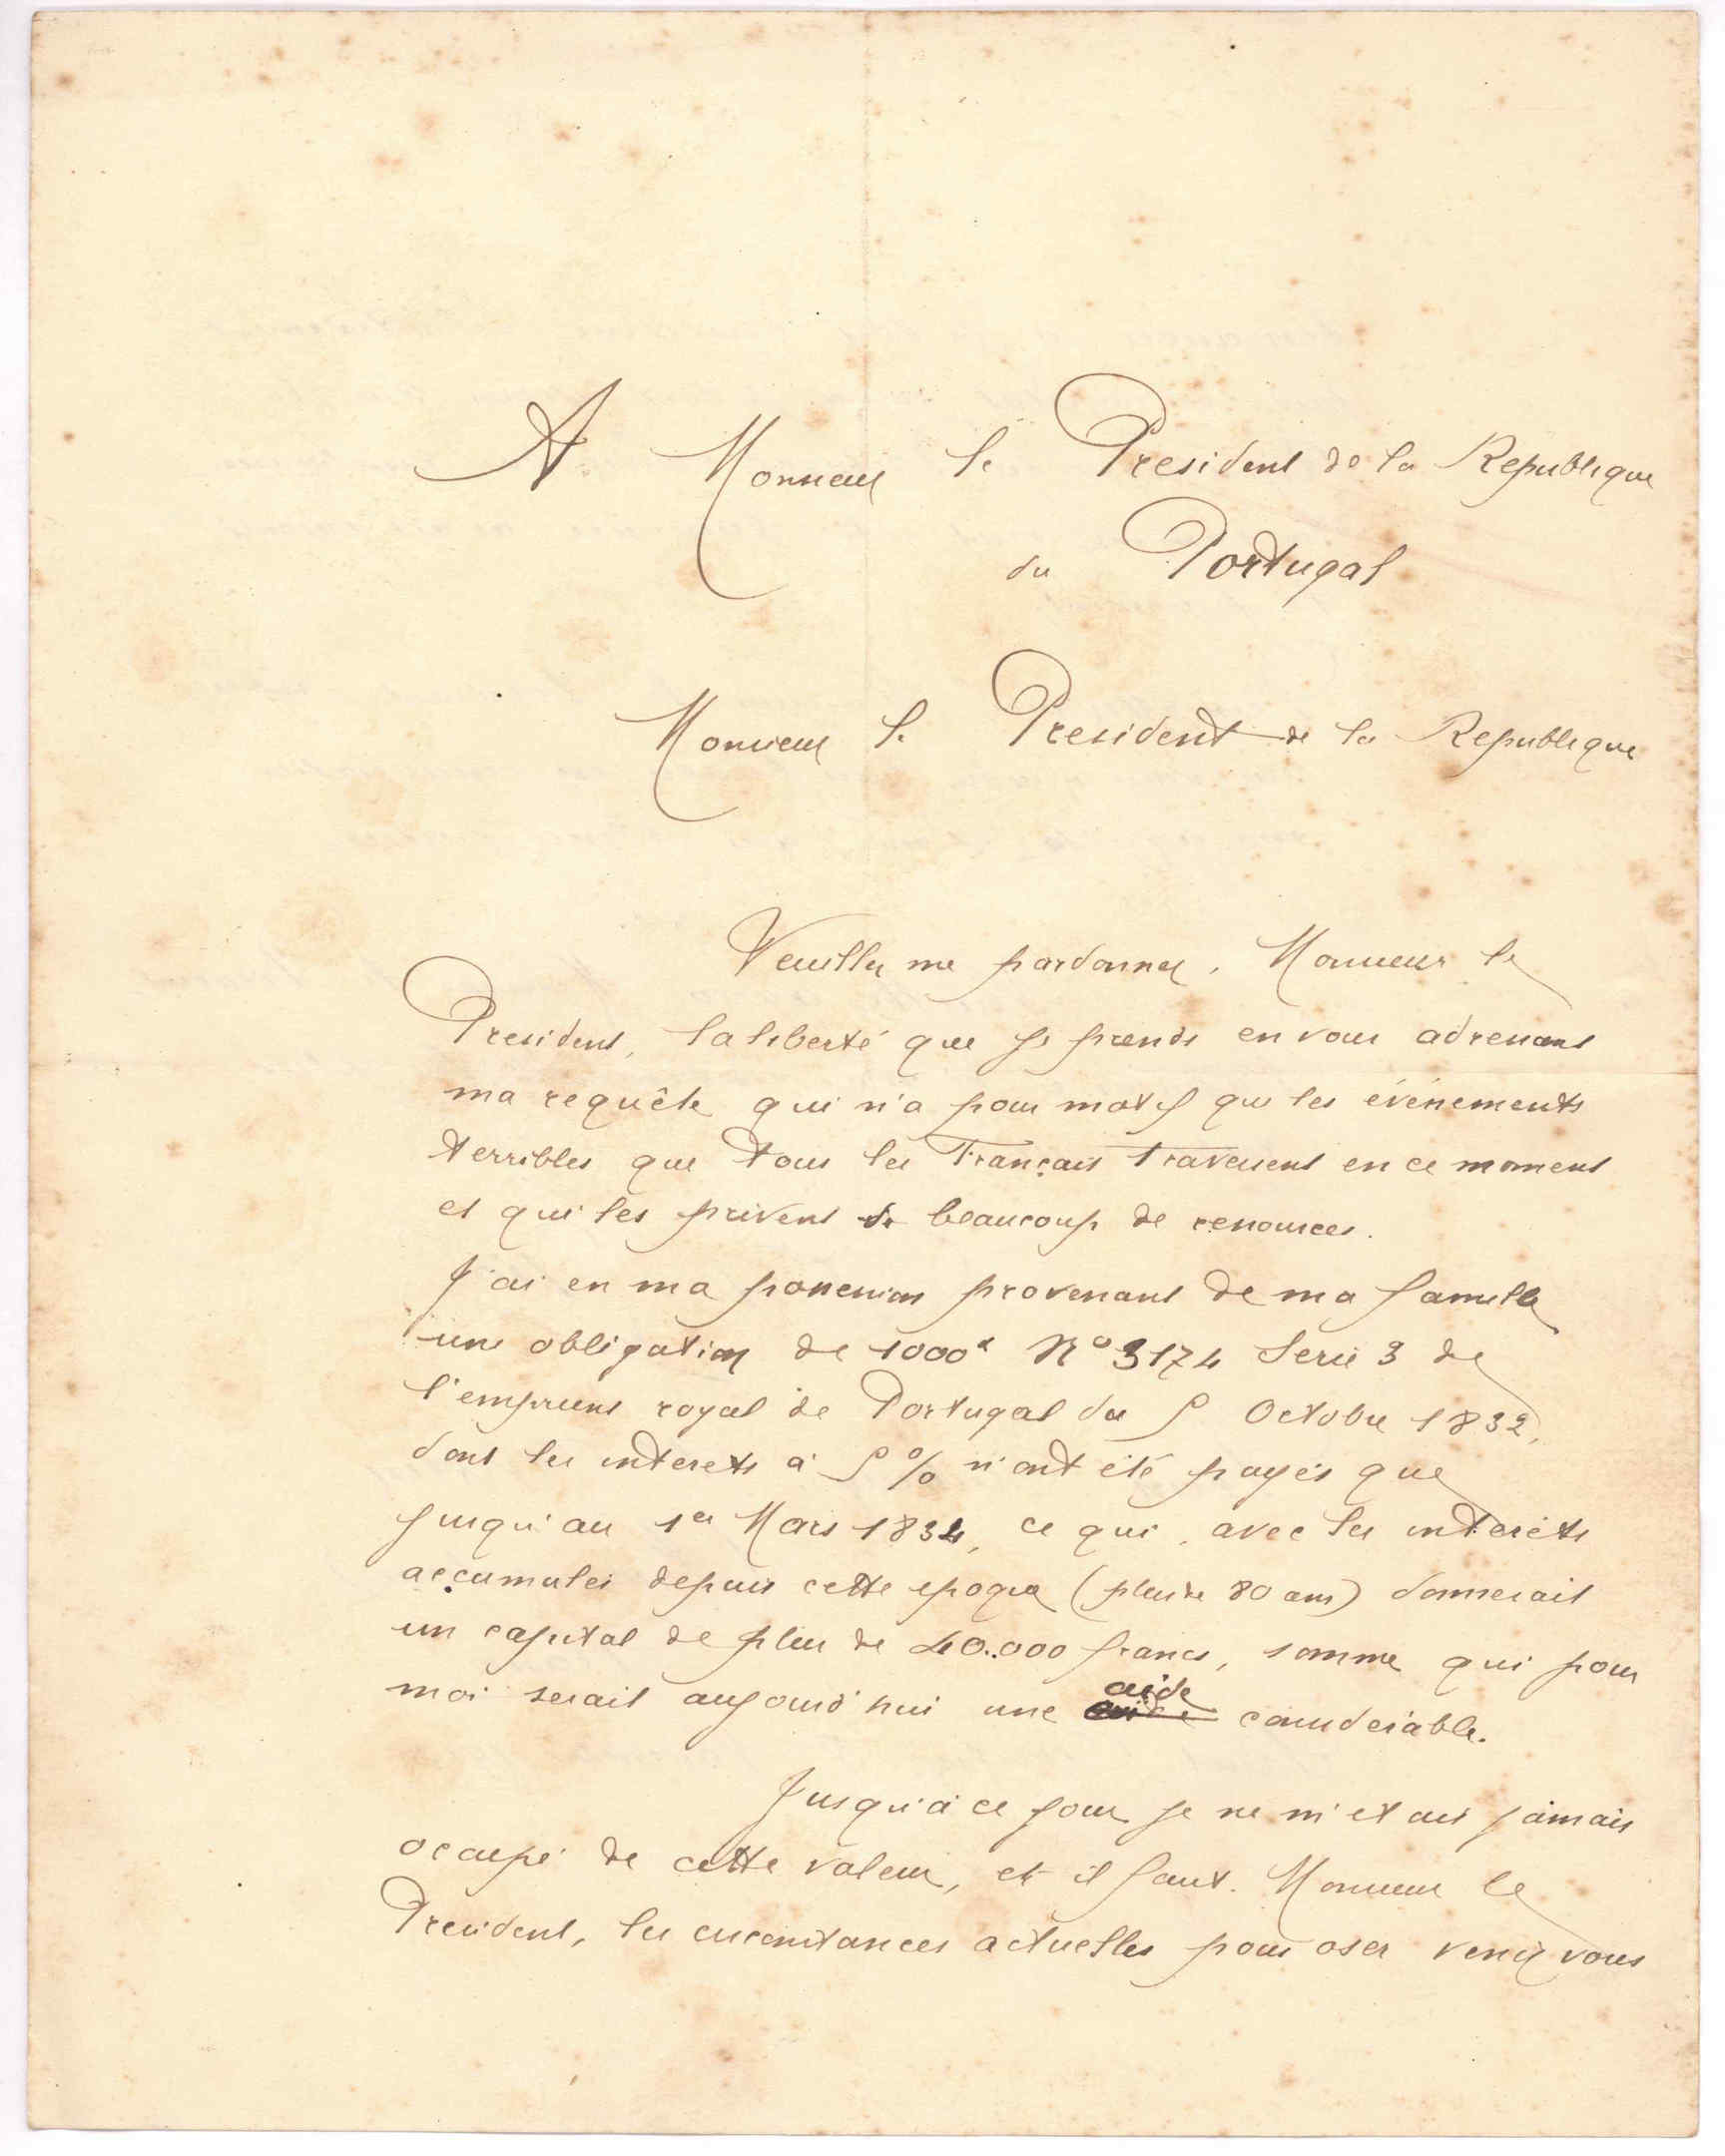 A Monsieur le President de la Republique
du Portugal
Monsieur le President de la Republique
Veuillez me pardonner, Monsieur le
President, la liberté que je prends en vous adressant
ma requête qui n'a pour motif que les événements
terribles que tous les Français traversent en ce moment
et qui les privent de beaucoup de ressources.
J'ai en ma possession provenant de ma famille
une obligation de 1000 f No 3174 Serie 3 de
l'emprunt royal de Portugal du 5 Octobre 1832,
dont les interets à 5 % n'ont été payés que
jusqu'au 1er Mars 1834, ce qui, avec les interêts
accumulés depuis cette epoque (plus de 80 ans) donnerait
un capital de plus de 40.000 francs, somme qui pour
moi serait aujourd'hui une aide considérable.
Jusqu'à ce jour je ne m'etais jamais
occupé de cette valeur, et il faut, Monsieur le
President, les circonstances actuelles pour oser venir vous